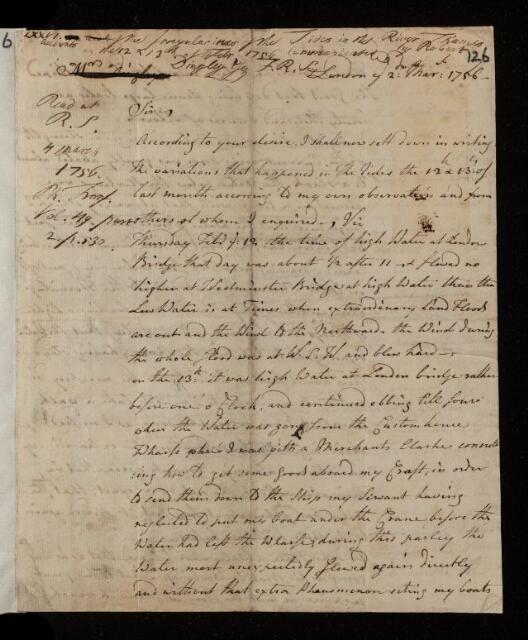 LXXVI.
the Irregularities of the Tides in the River Thames
the 12 & 13th of Feb. 1756 communicated by Robert
Dingley Esq F. R. S.
London ye 2: Mar: 1756
126
6
Read at
R. S.
4 March
1756.
Ph. Trans.
Vol. 49. part
2 p. 530.
Sir,
According to your desire, I shall now sett down in writing
the variations that happened in the Tides the 12th & 13th of
last month according to my own observation and from
others of whom I enquired, Viz
Thursday Feb. ye 12, the time of high Water at London
Bridge that day was about 1/2 after 11 & flowed no
higher at Westminster Bridge at high Water then the
Low Water is at Times when extraordinary Land Floods
are out and the Wind to the Northward. the Wind during
the whole flood was at W. S. W. and blew hard
on the 13th: it was high Water at London bridge rather
before one o Clock, and continued ebbing till four
when the Water was gone from the Customhouse
Wharfe where I was with a Merchants Clarke consult
ing how to get some goods aboard my Craft, in order
to send them down to the Ship my Servant having
neglected to put my boat under the Crane before the
Water had left the Wharfe; during this parley the
Water most unexpectedly flowed again directly
and without that extra Phenomenon seting my boats